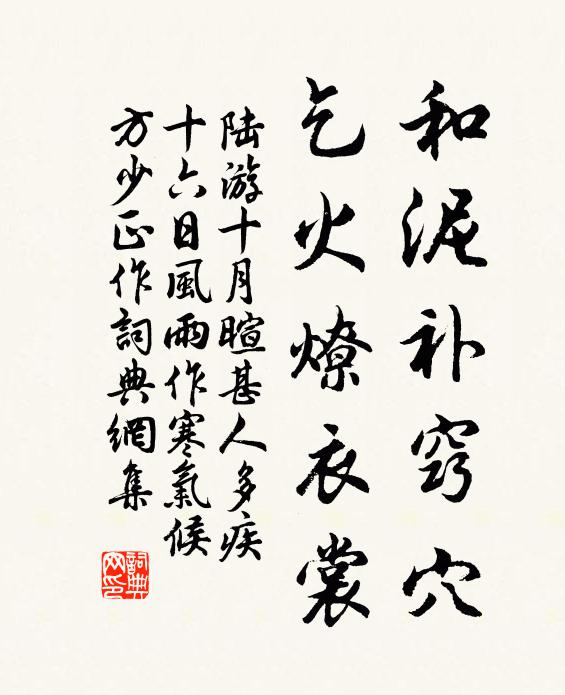 和泥补窍穴
乞火燎衣裳
陆游十月暄甚人多疾
十六日風雨作寒氣候
方少正作詞典網集
詞典
网印